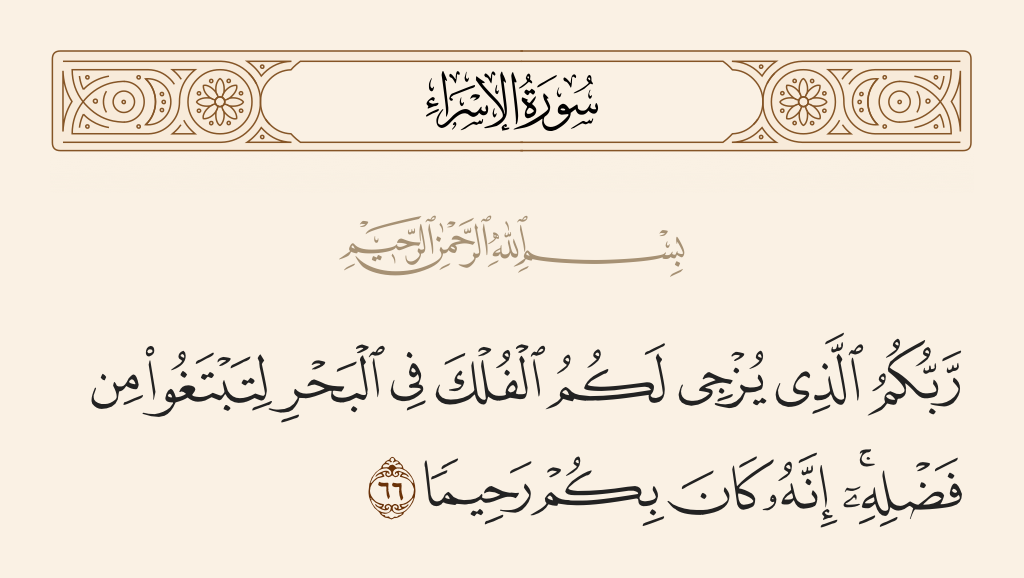 سُورَةُ الإِسْرَاءِ
بِسْمِ ٱللَّهِ ٱلرَّحْمَٰنِ ٱلرَّحِيمِ
رَّبُّكُمُ ٱلَّذِى يُزْجِى لَكُمُ ٱلْفُلْكَ فِى ٱلْبَحْرِ لِتَبْتَغُوا۟ مِن
فَضْلِهِۦٓ ۚ إِنَّهُۥ كَانَ بِكُمْ رَحِيمًا ٦٦